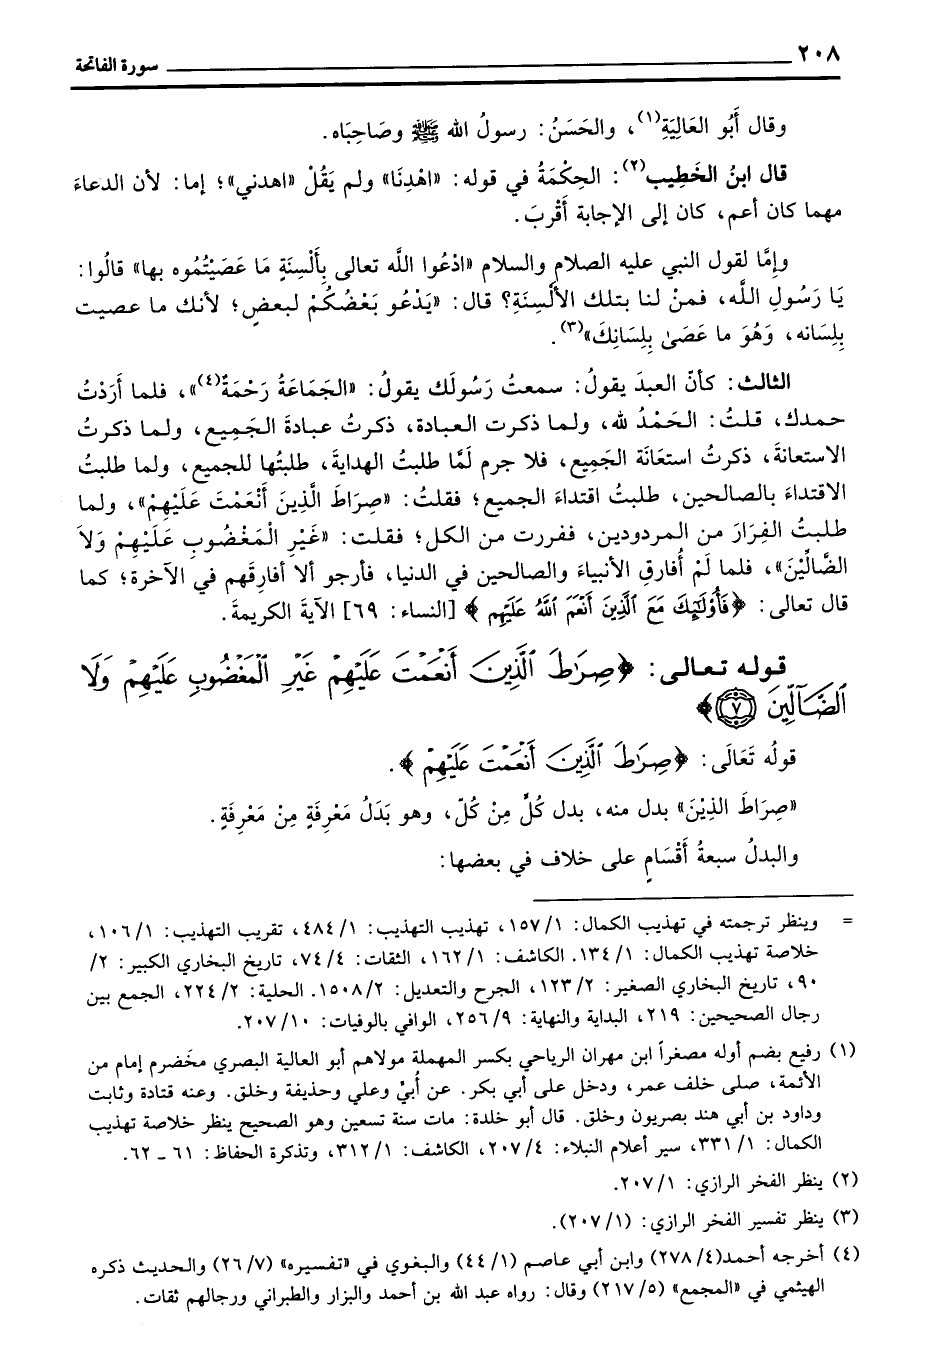 ٢٠٨ سورة الفاتحة
وقال أَبُو العَالِيَةِ(١)، والحَسَنُ: رسولُ الله ﷺ وصَاحِبَاه.
قال ابنُ الخَطِيب(٢): الحِكْمَةُ في قوله: «اهْدِنَا» ولم يَقُلْ «اهدني»؛ إما: لأن الدعاءَ
مهما كان أعم، كان إلى الإجابة أَقْرَبَ.
وإمَّا لقول النبي عليه الصلام والسلام «ادْعُوا اللَّه تعالى بِأَلْسِنَةٍ مَا عَصَيْتُمُوه بها» قالُوا:
يَا رَسُولِ اللَّه، فمنْ لنا بتلك الأَلْسِنَةِ؟ قال: «يَدْعُو بَعْضُكُمْ لبعضٍ؛ لأنك ما عصيت
بِلِسَانه، وَهُوَ ما عَصَىٰ بِلِسَانِكَ»(٣).
الثالث: كأنّ العبدَ يقولُ: سمعتُ رَسُولَك يقولُ: «الجَمَاعَةُ رَحْمَةٌ(٤)»، فلما أَرَدْتُ
حمدك، قلتُ: الحَمْدُ لله، ولما ذكرت العبادة، ذكرتُ عبادةَ الجَمِيع، ولما ذكرتُ
الاستعانةَ، ذكرتُ استعَانَة الجَمِيع، فلا جرم لَمَّا طلبتُ الهدايةَ، طلبتُها للجميع، ولما طلبتُ
الاقتداءَ بالصالحين، طلبتُ اقتداءَ الجميع؛ فقلتُ: «صِرَاطَ الَّذِينَ أَنْعَمْتَ عَلَيْهِمْ»، ولما
طلبتُ الفِرَارَ من المردودين، ففررت من الكل؛ فقلت: «غَيْرِ الْمَغْضُوبِ عَلَيْهِمْ وَلاَ
الضَّالِّيْنَ»، فلما لَمْ أُفارقِ الأنبياءَ والصالحين في الدنيا، فأرجو ألا أفارِقَهم في الآخرة؛ كما
قال تعالى: ﴿فَأُوْلَـٰٓئِكَ مَعَ ٱلَّذِينَ أَنْعَمَ ٱللَّهُ عَلَيْهِم﴾ [النساء: ٦٩] الآيةَ الكريمةَ.
قوله تعالى: ﴿صِرَٰطَ ٱلَّذِينَ أَنْعَمْتَ عَلَيْهِمْ غَيْرِ ٱلْمَغْضُوبِ عَلَيْهِمْ وَلَا
ٱلضَّآلِّينَ ٧﴾
قولُه تَعَالَى: ﴿صِرَٰطَ ٱلَّذِينَ أَنْعَمْتَ عَلَيْهِمْ﴾.
«صِرَاطَ الذِيْنَ» بدل منه، بدل كُلِّ مِنْ كُلّ، وهو بَدَلُ مَعْرِفَةٍ مِنْ مَعْرِفَةٍ.
والبدلُ سبعةُ أَقْسَامٍ على خلاف في بعضها:
= وينظر ترجمته في تهذيب الكمال: ١/ ١٥٧، تهذيب التهذيب: ١/ ٤٨٤، تقريب التهذيب: ١/ ١٠٦،
خلاصة تهذيب الكمال: ١/ ١٣٤. الكاشف: ١/ ١٦٢، الثقات: ٤/ ٧٤، تاريخ البخاري الكبير: ٢/
٩٠، تاريخ البخاري الصغير: ٢/ ١٢٣، الجرح والتعديل: ٢/ ١٥٠٨. الحلية: ٢/ ٢٢٤، الجمع بين
رجال الصحيحين: ٢١٩، البداية والنهاية: ٩/ ٢٥٦، الوافي بالوفيات: ١٠/ ٢٠٧.
(١) رفيع بضم أوله مصغراً ابن مهران الرياحي بكسر المهملة مولاهم أبو العالية البصري مخضرم إمام من
الأئمة، صلى خلف عمر، ودخل على أبي بكر. عن أُبيّ وعلي وحذيفة وخلق. وعنه قتادة وثابت
وداود بن أبي هند بصريون وخلق. قال أبو خلدة: مات سنة تسعين وهو الصحيح ينظر خلاصة تهذيب
الكمال: ١/ ٣٣١، سير أعلام النبلاء: ٤/ ٢٠٧، الكاشف: ١/ ٣١٢، وتذكرة الحفاظ: ٦١ ـ ٦٢.
(٢) ينظر الفخر الرازي: ١/ ٢٠٧.
(٣) ينظر تفسير الفخر الرازي: (١/ ٢٠٧).
(٤) أخرجه أحمد(٤/ ٢٧٨) وابن أبي عاصم (١/ ٤٤) والبغوي في «تفسيره» (٧/ ٢٦) والحديث ذكره
الهيثمي في «المجمع» (٥/ ٢١٧) وقال: رواه عبد الله بن أحمد والبزار والطبراني ورجالهم ثقات.